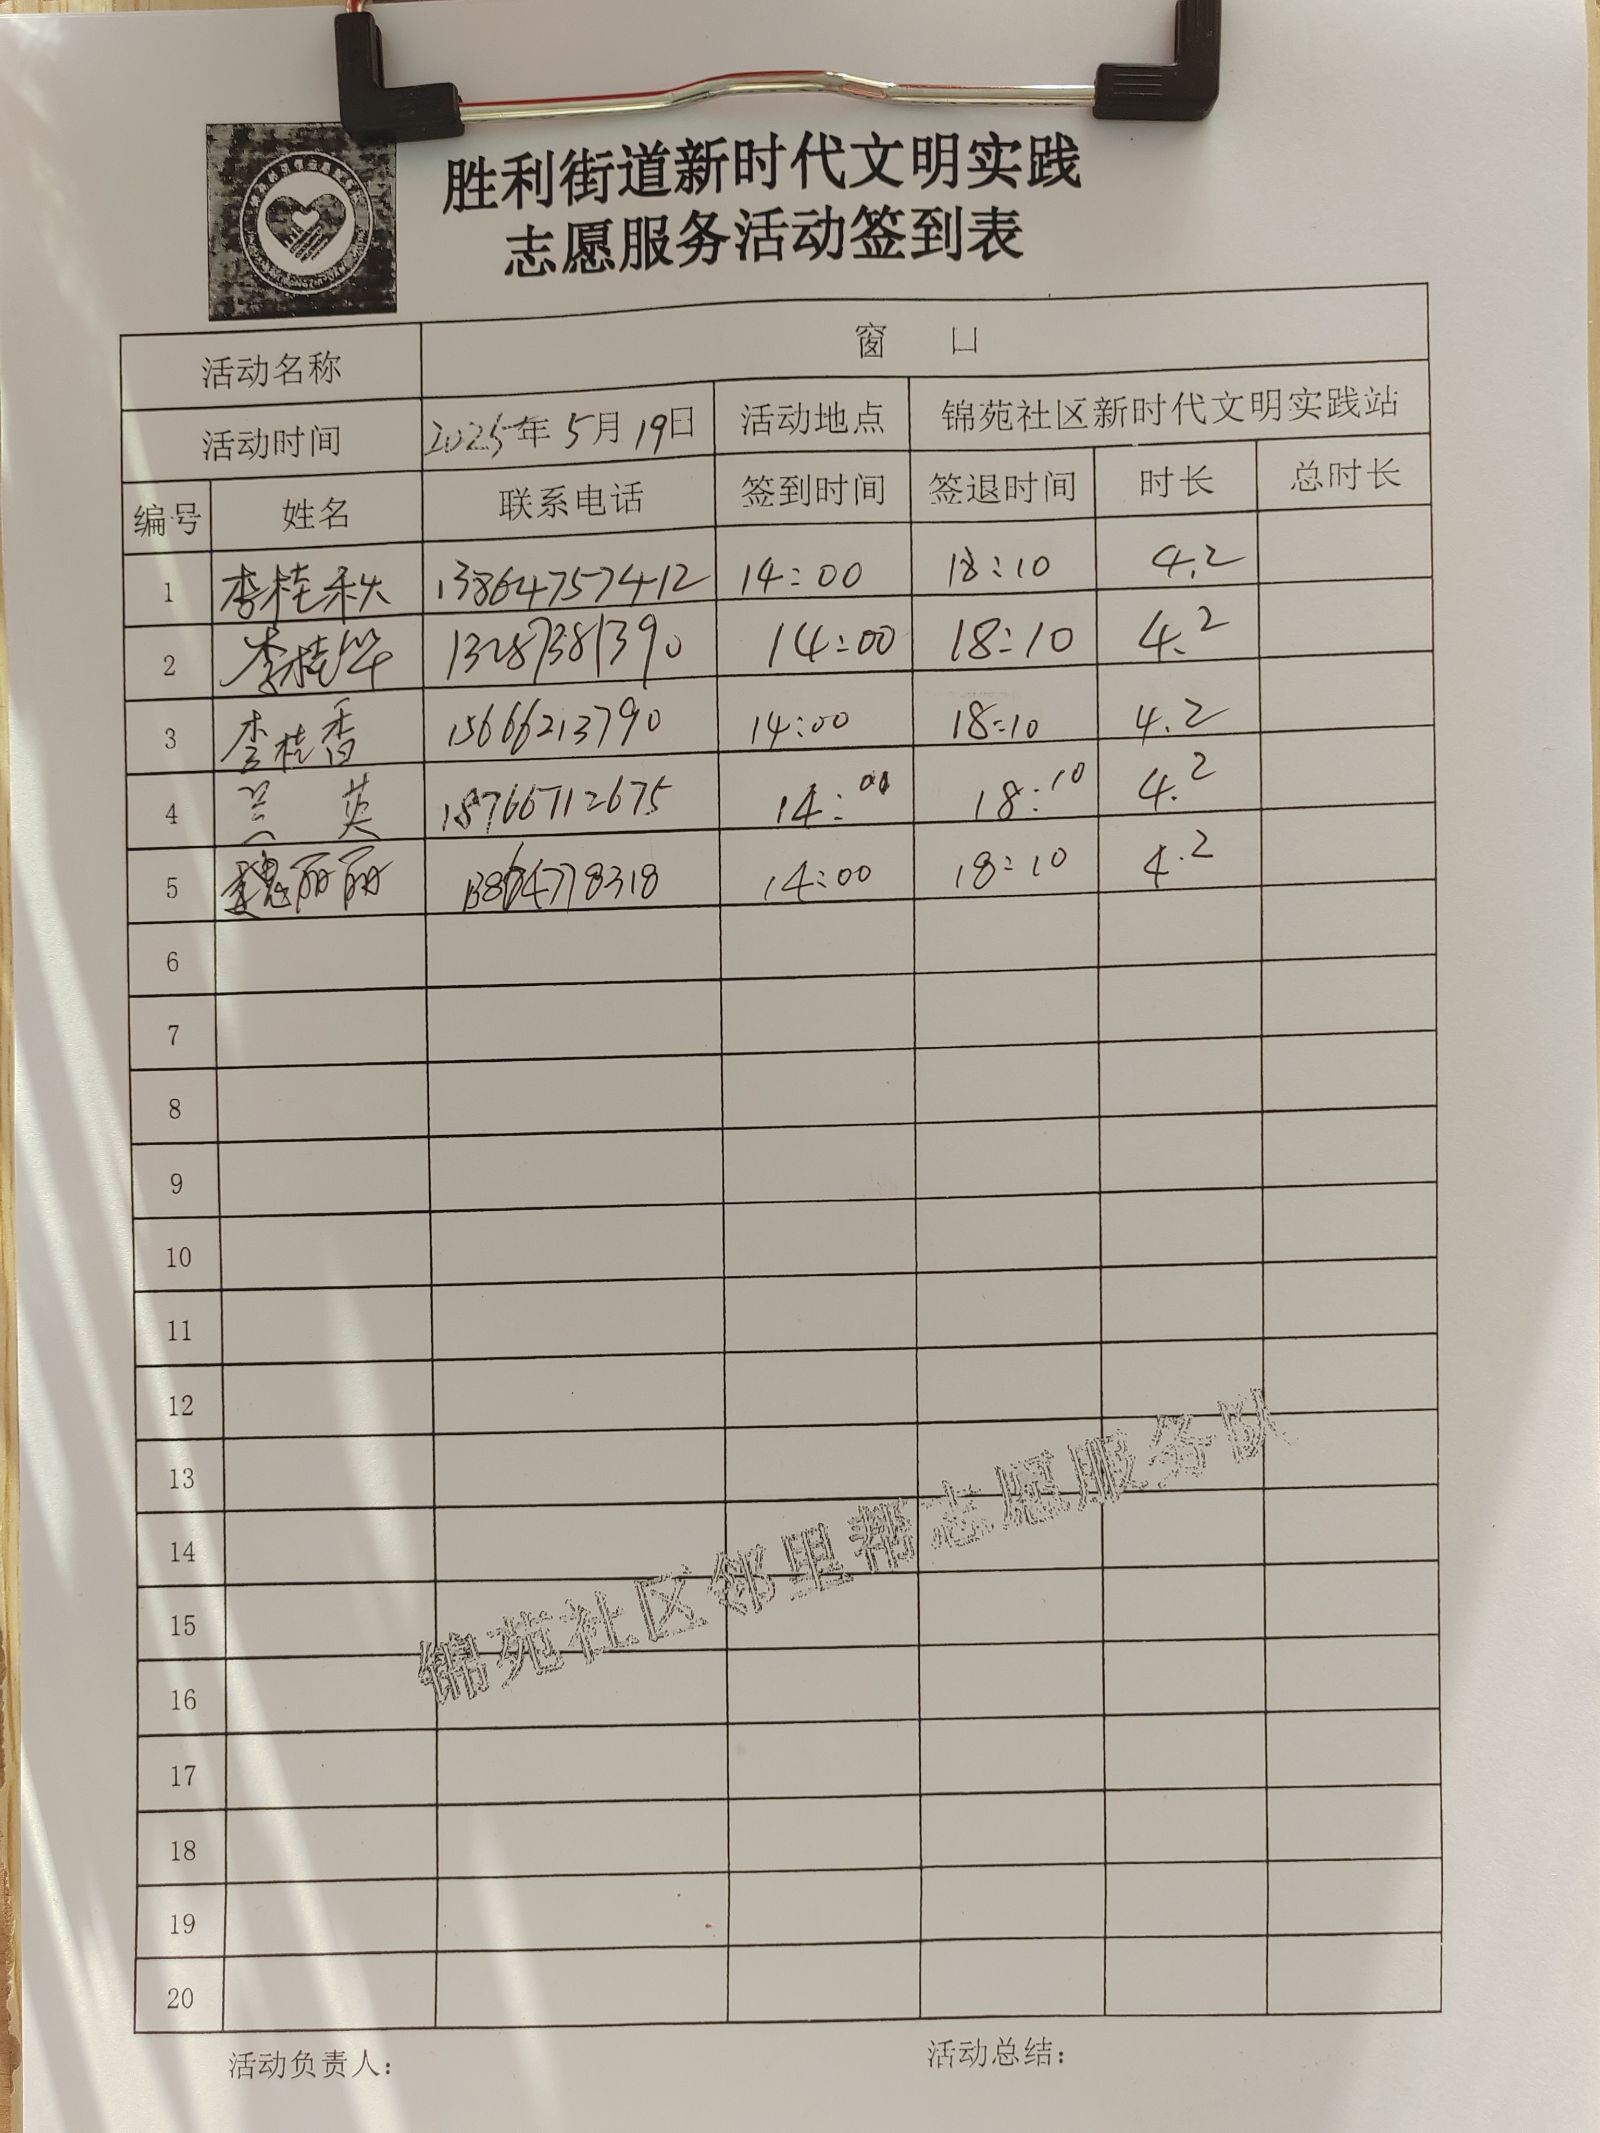 胜利街道新时代文明实践
志愿服务活动签到表
活动名称 窗 口
活动时间 2025年5月19日 活动地点 锦苑社区新时代文明实践站
编号 姓名 联系电话 签到时间 签退时间 时长 总时长
1 李桂秋 13864757412 14:00 18:10 4.2
2 李桂华 13287381390 14:00 18:10 4.2
3 李桂香 15666213790 14:00 18:10 4.2
4 兰 英 18766712675 14:00 18:10 4.2
5 魏丽丽 13864778318 14:00 18:10 4.2
6
7
8
9
10
11
12
13
14
15
16
17
18
19
20
锦苑社区邻里帮志愿服务队
活动负责人: 活动总结: